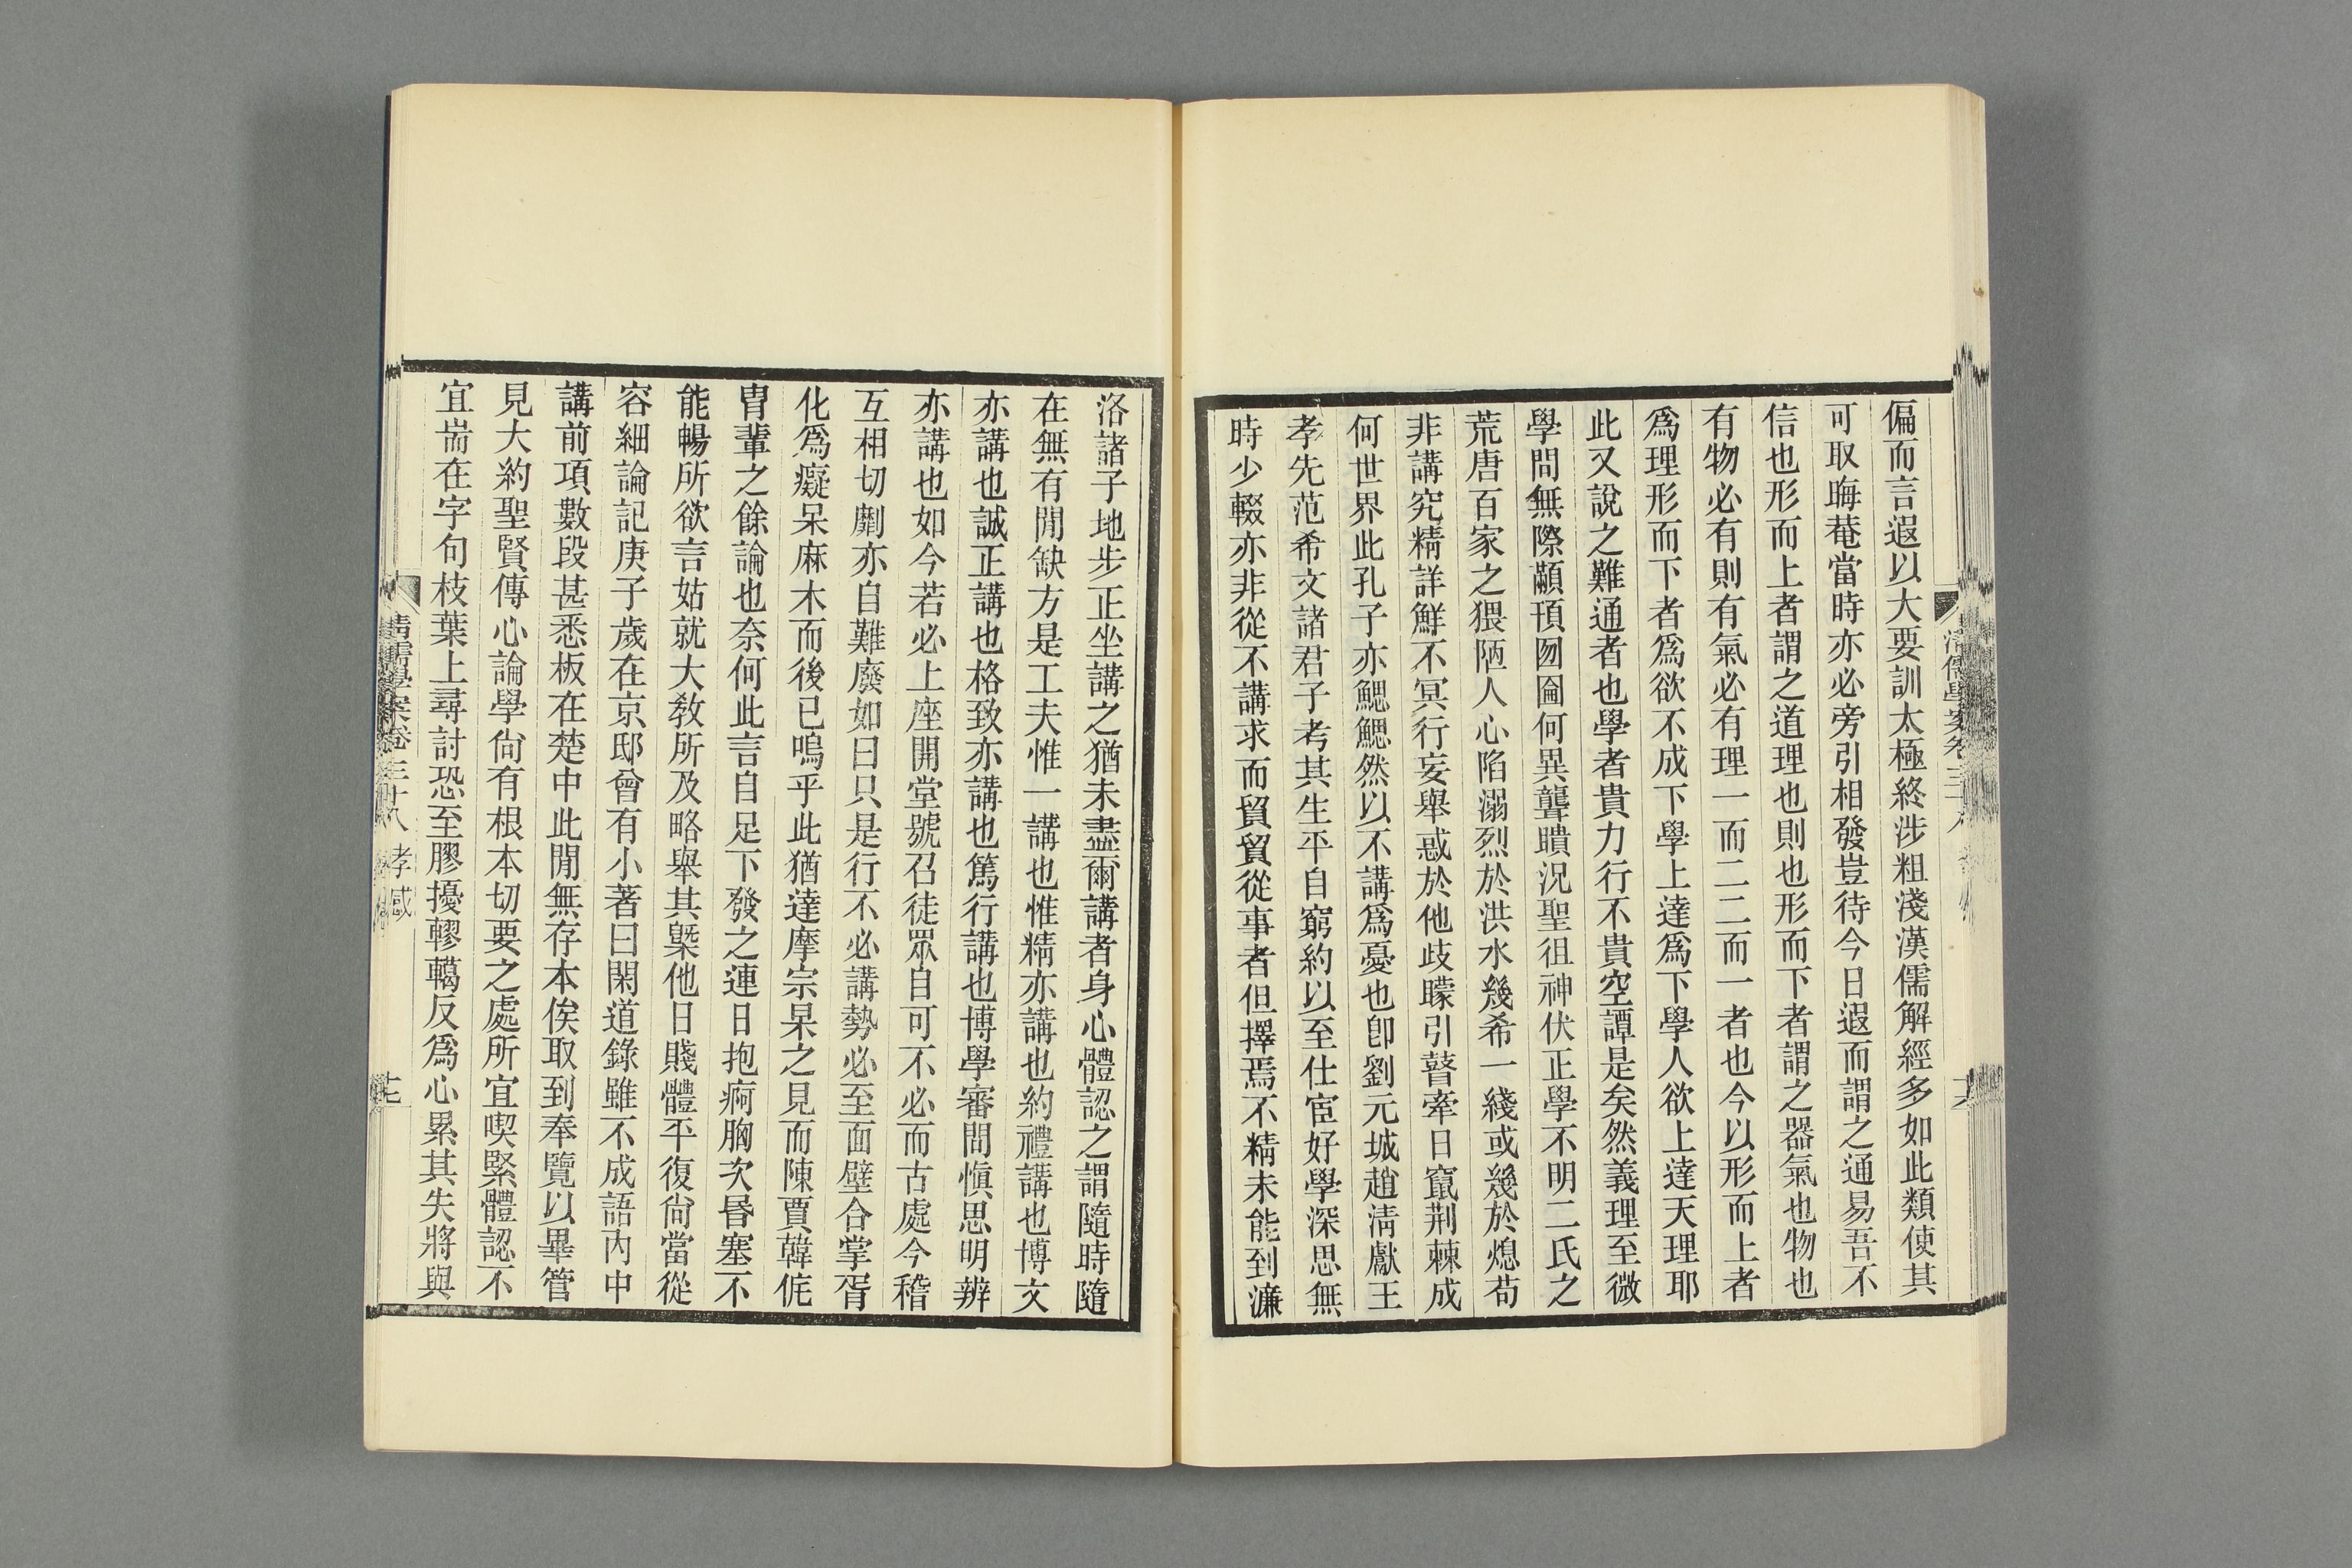 偏而言遐以大要訓太極終涉粗淺漢儒解經多如此類使其
可取晦菴當時亦必旁引相發豈待今日遐而謂之通易吾不
信也形而上者謂之道理也則也形而下者謂之器氣也物也
有物必有則有氣必有理一而二二而一者也今以形而上者
爲理形而下者爲欲不成下學上達爲下學人欲上達天理耶
此又說之難通者也學者貴力行不貴空譚是矣然義理至微
學問無際顢頇囫圇何異聾聵況聖徂神伏正學不明二氏之
荒唐百家之猥陋人心陷溺烈於洪水幾希一綫或幾於熄苟
非講究精詳鮮不冥行妄舉惑於他歧矇引瞽牽日竄荆棘成
何世界此孔子亦鰓鰓然以不講爲憂也卽劉元城趙淸獻王
孝先范希文諸君子考其生平自窮約以至仕宦好學深思無
時少輟亦非從不講求而貿貿從事者但擇焉不精未能到濂
洛諸子地步正坐講之猶未盡爾講者身心體認之謂隨時隨
在無有閒缺方是工夫惟一講也惟精亦講也約禮講也博文
亦講也誠正講也格致亦講也篤行講也博學審問愼思明辨
亦講也如今若必上座開堂號召徒眾自可不必而古處今稽
互相切劘亦自難廢如曰只是行不必講勢必至面壁合掌胥
化爲癡呆麻木而後已嗚乎此猶達摩宗杲之見而陳賈韓侂
胄輩之餘論也奈何此言自足下發之連日抱痾胸次昬塞不
能暢所欲言姑就大敎所及略舉其槩他日賤體平復尙當從
容細論記庚子歲在京邸曾有小著曰閑道錄雖不成語內中
講前項數段甚悉板在楚中此閒無存本俟取到奉覽以畢管
見大約聖賢傳心論學尙有根本切要之處所宜喫緊體認不
宜耑在字句枝葉上尋討恐至膠擾轇轕反爲心累其失將與
淸儒學案卷三十八 孝感 十七